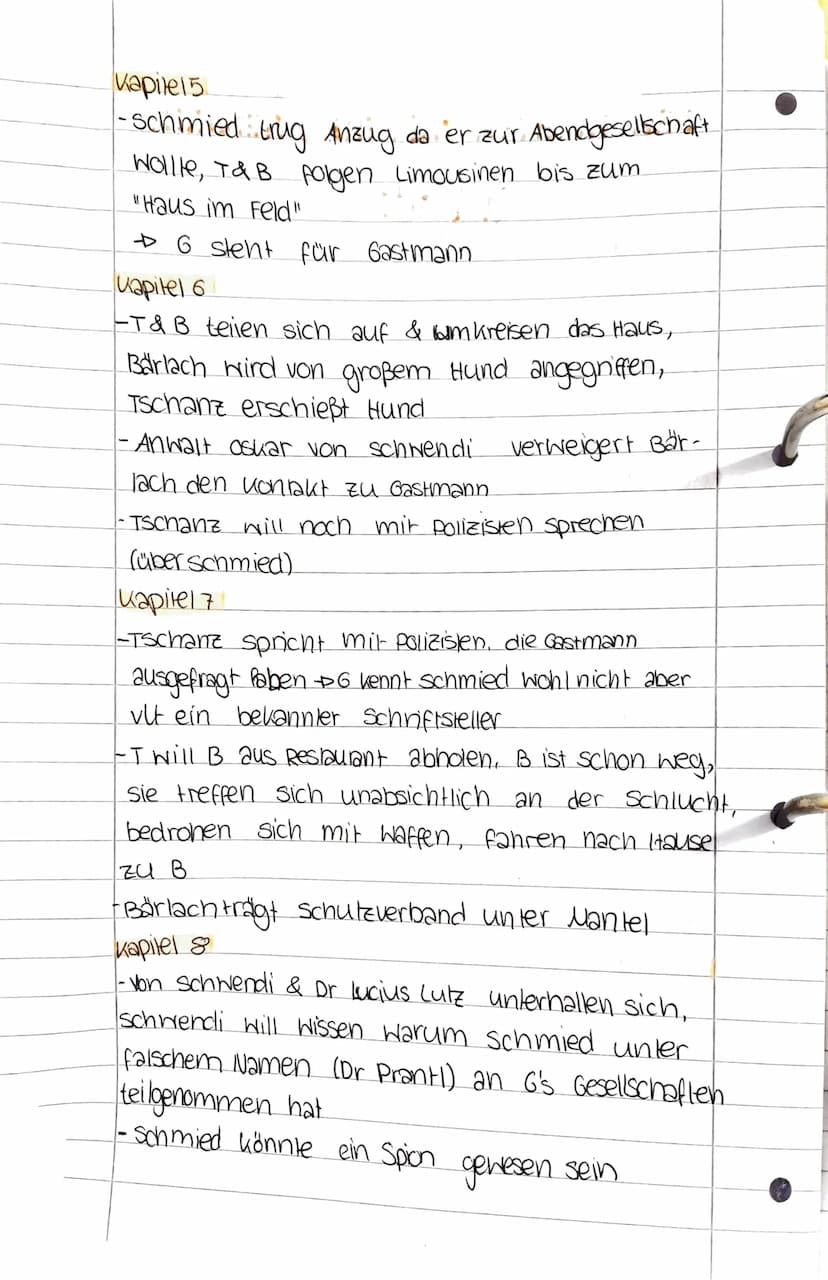 Kapitel 5
- Schmied trug Anzug da er zur Abendgesellschaft
wollte, T & B folgen Limousinen bis zum
"Haus im Feld"
→ G steht für Gastmann
Kapitel 6
- T & B teilen sich auf & umkreisen das Haus,
Bärlach wird von großem Hund angegriffen,
Tschanz erschießt Hund
- Anwalt Oskar von Schwendi verweigert Bär-
lach den Kontakt zu Gastmann
- Tschanz will noch mit Polizisten sprechen
(über Schmied)
Kapitel 7
- Tschanz spricht mit Polizisten, die Gastmann
ausgefragt haben → G kennt Schmied wohl nicht aber
vlt ein bekannter Schriftsteller
- T will B aus Restaurant abholen, B ist schon weg,
sie treffen sich unabsichtlich an der Schlucht,
bedrohen sich mit Waffen, fahren nach Hause
zu B
- Bärlach trägt Schutzverband unter Mantel
Kapitel 8
- Von Schwendi & Dr Lucius Lutz unterhalten sich,
Schwendi will wissen warum Schmied unter
falschem Namen (Dr Prantl) an G's Gesellschaften
teilgenommen hat
- Schmied könnte ein Spion gewesen sein